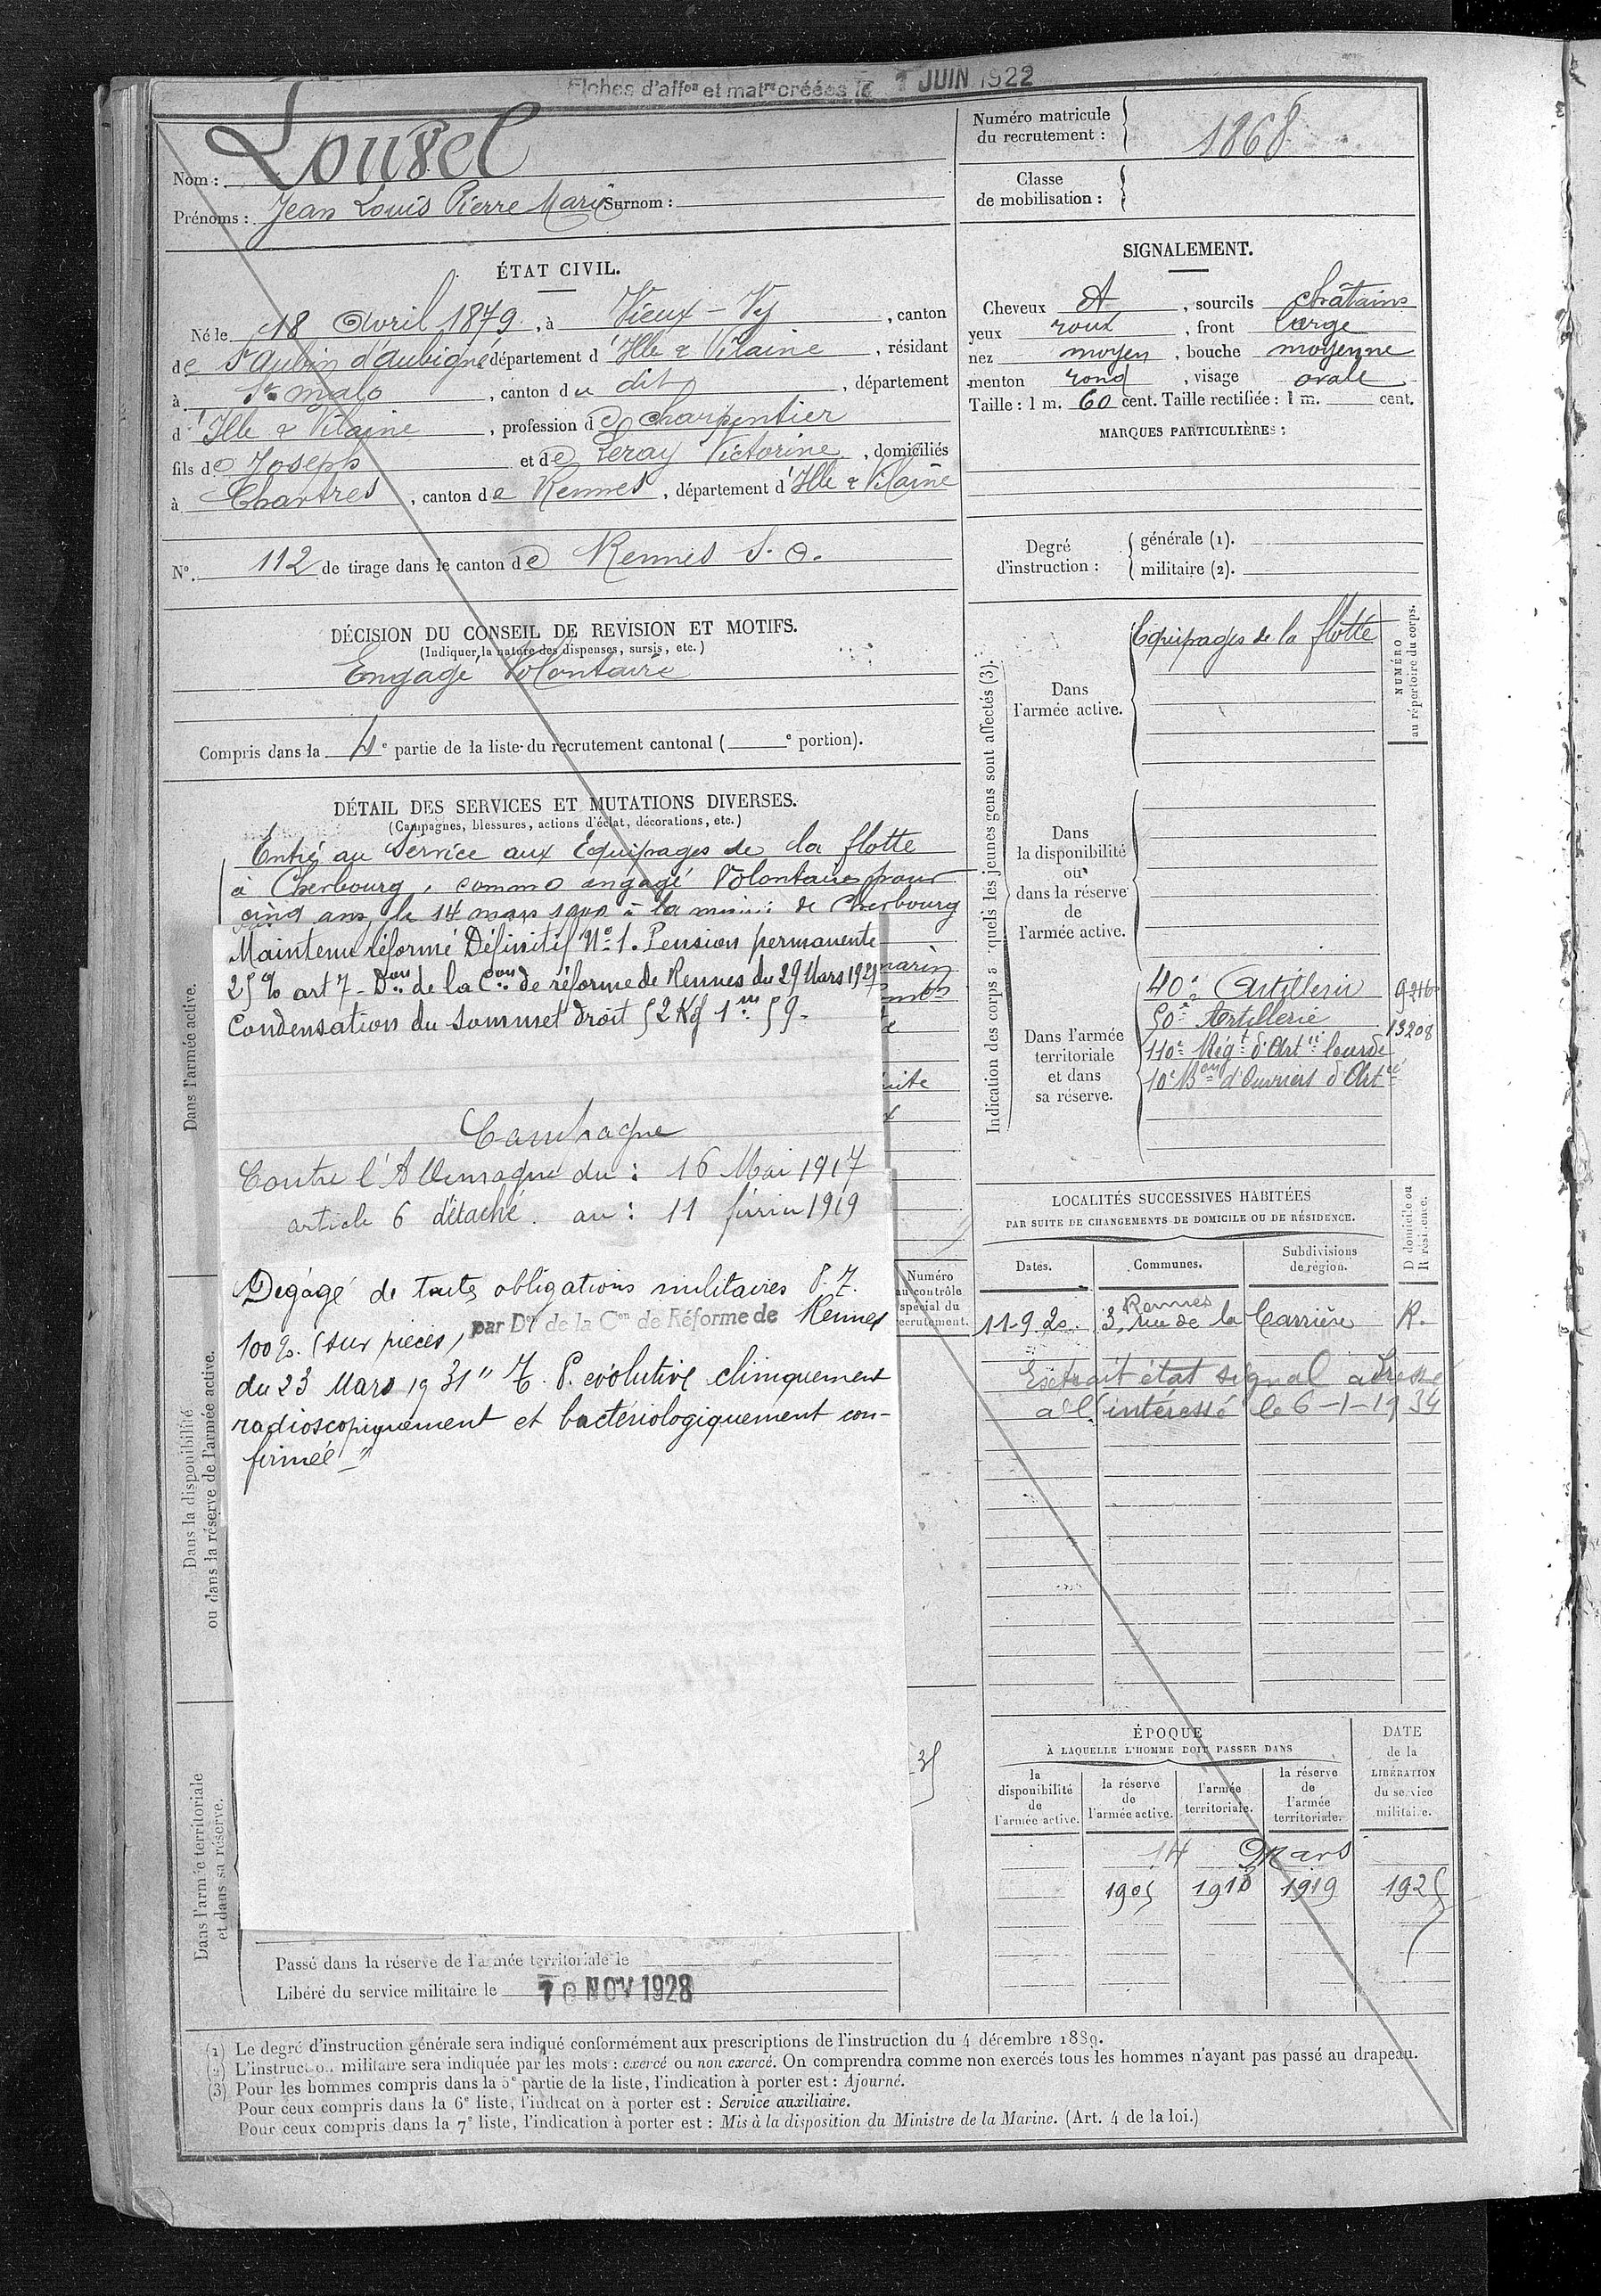 Fiches d'aff^on et mat^re créées le 1 JUIN 1922
Nom : Lousel
Prénoms : Jean Louis Pierre Marie Surnom :
Numéro matricule du recrutement : 1868
Classe de mobilisation :
ÉTAT CIVIL.
Né le 18 Avril 1879, à Vieux-Vy, canton
de St Aubin d'Aubigné département d'Ille & Vilaine, résidant
à St Malo, canton du dit, département
d'Ille & Vilaine, profession de charpentier
fils de Joseph et de Leray Victorine, domiciliés
à Chartres, canton de Rennes, département d'Ille & Vilaine
N° 112 de tirage dans le canton de Rennes S. O.
DÉCISION DU CONSEIL DE REVISION ET MOTIFS.
(Indiquer la nature des dispenses, sursis, etc.)
Engagé Volontaire
Compris dans la 4e partie de la liste du recrutement cantonal ( e portion).
DÉTAIL DES SERVICES ET MUTATIONS DIVERSES.
(Campagnes, blessures, actions d'éclat, décorations, etc.)
Entré au service aux Equipages de la flotte
à Cherbourg, comme engagé Volontaire pour
cinq ans le 14 mars 1900 à la mairie de Cherbourg
Maintenu réformé Définitif N° 1. Pension permanente
25 % art 7 - Don de la Con de réforme de Rennes du 29 Mars 1921
Condensation du sommet droit 52 Kg 1m 59-
Campagne
Contre l'Allemagne du : 16 Mai 1917
article 6 détaché. au : 11 février 1919
Dégagé de toutes obligations militaires P. T.
100%. (sur pièces) par Don de la Con de Réforme de Rennes
du 23 Mars 1931 " T. P. évolutive cliniquement
radioscopiquement et bactériologiquement con-
firmée"
Dans l'armée active.
Dans la disponibilité
ou dans la réserve de l'armée active.
Dans l'armée territoriale
et dans sa réserve.
Numéro
au contrôle
spécial du
recrutement.
Passé dans la réserve de l'armée territoriale le
Libéré du service militaire le 10 NOV 1928
SIGNALEMENT.
Cheveux et, sourcils châtains
yeux roux, front large
nez moyen, bouche moyenne
menton rond, visage ovale
Taille : 1 m. 60 cent. Taille rectifiée : 1 m. cent.
MARQUES PARTICULIÈRES :
Degré d'instruction : générale (1).
militaire (2).
Indication des corps auxquels les jeunes gens sont affectés (3).
NUMÉRO
au répertoire du corps.
Dans
l'armée active.
Equipages de la flotte
Dans
la disponibilité
ou
dans la réserve
de
l'armée active.
Dans l'armée
territoriale
et dans
sa réserve.
40e Artillerie
50e Artillerie 13208
110e Régt d'Artie lourde
10e Bon d'Ouvriers d'Artie
LOCALITÉS SUCCESSIVES HABITÉES
PAR SUITE DE CHANGEMENTS DE DOMICILE OU DE RÉSIDENCE.
Dates. Communes. Subdivisions de région. D domicile ou R résidence.
Rennes
11-9 20. 3, rue de la Carrière R.
Extrait état signal adressé
à l'intéressé le 6-1-1934
ÉPOQUE
À LAQUELLE L'HOMME DOIT PASSER DANS
DATE
de la
LIBÉRATION
du service
militaire.
la disponibilité de l'armée active.
la réserve de l'armée active.
l'armée territoriale.
la réserve de l'armée territoriale.
14 Mars
1905 1913 1919 1925
(1) Le degré d'instruction générale sera indiqué conformément aux prescriptions de l'instruction du 4 décembre 1889.
(2) L'instruction militaire sera indiquée par les mots : exercé ou non exercé. On comprendra comme non exercés tous les hommes n'ayant pas passé au drapeau.
(3) Pour les hommes compris dans la 5e partie de la liste, l'indication à porter est : Ajourné.
Pour ceux compris dans la 6e liste, l'indication à porter est : Service auxiliaire.
Pour ceux compris dans la 7e liste, l'indication à porter est : Mis à la disposition du Ministre de la Marine. (Art. 4 de la loi.)